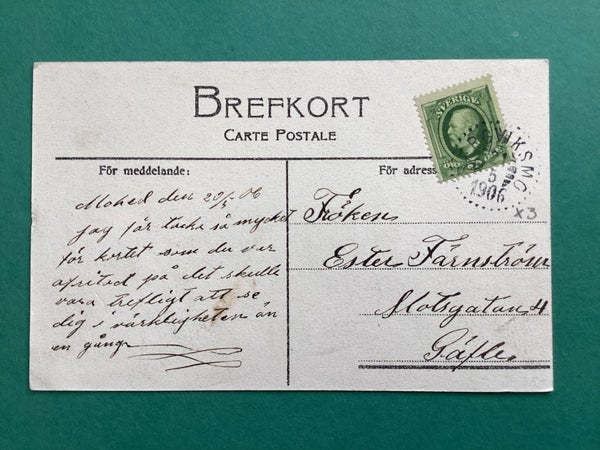 BREFKORT
CARTE POSTALE
För meddelande:
För adress
SVERIGE
1906
x3
Mohed den 20/5 06
jag får tacka så mycket
för kortet som du var
afritad på det skulle
vara trefligt att se
dig i värkligheten än
en gång
Fröken
Ester Färnström
Slotsgatan 4
Gäfle